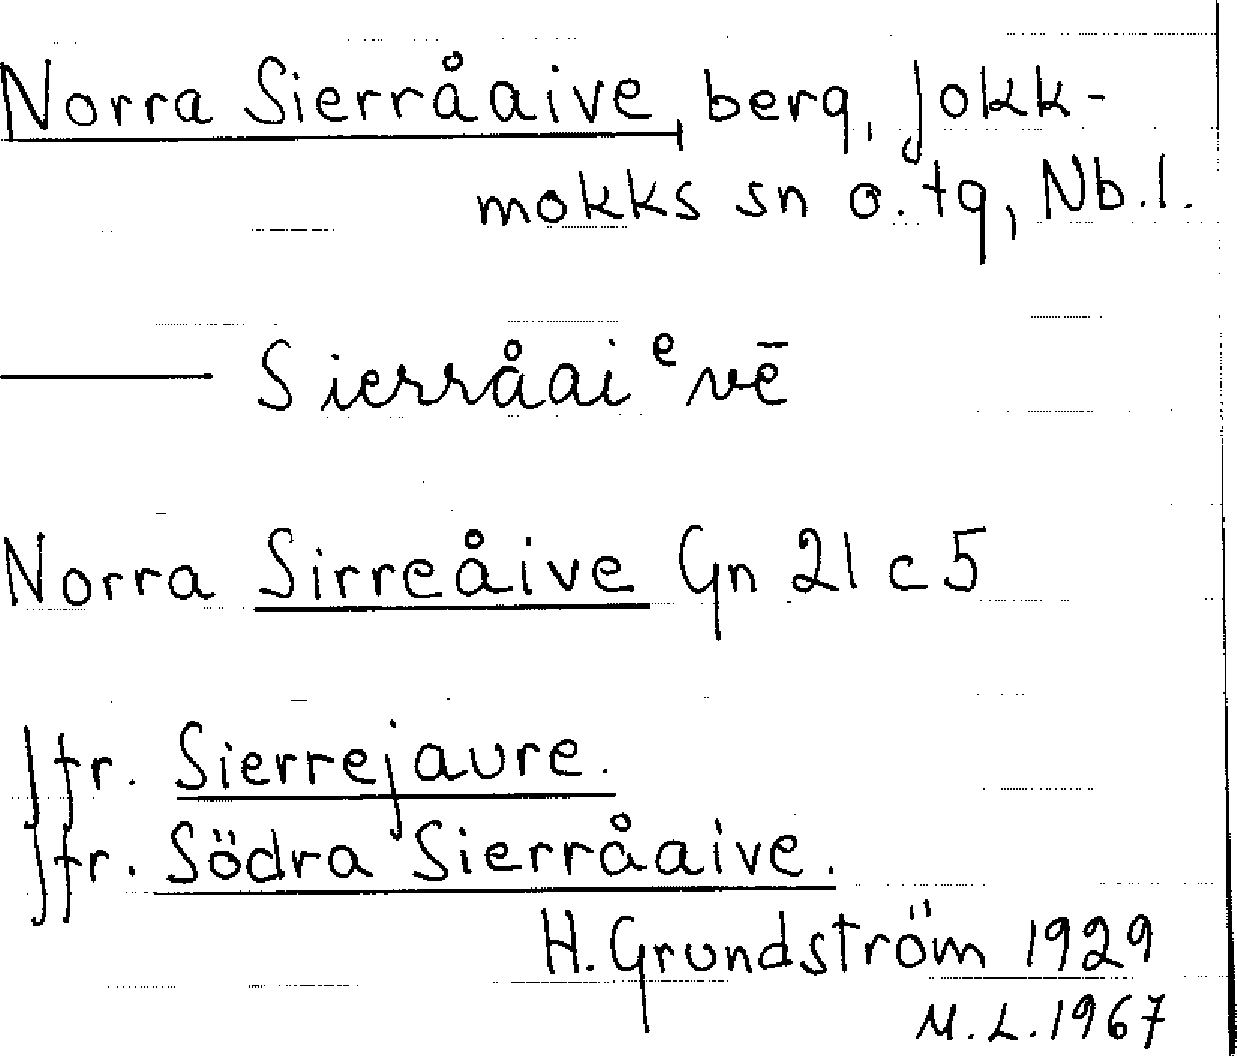 Norra Sierråaive, berg, Jokk-
mokks sn o. tg, Nb.l.
——— Sierråaiᵉvē
Norra Sirreåive Gn 21 c 5
Jfr. Sierrejaure.
Jfr. Södra Sierråaive.
H. Grundström 1929
M.L. 1967